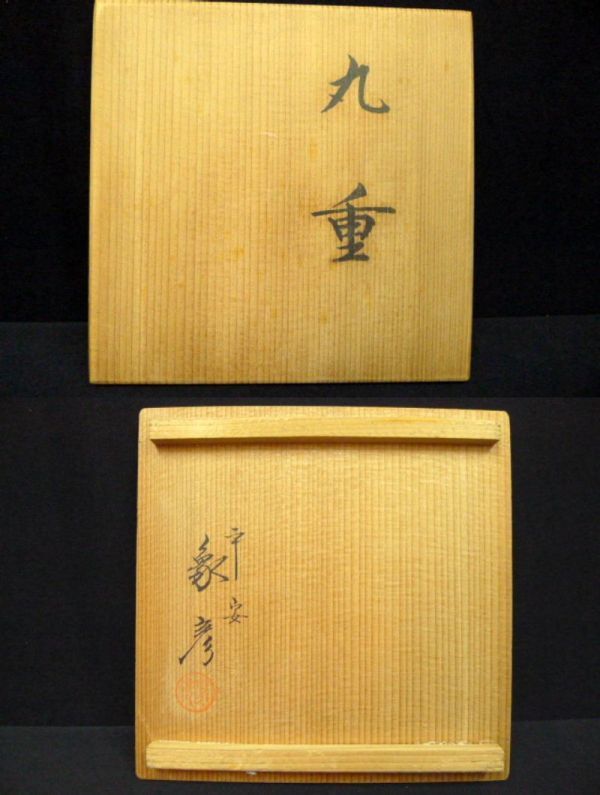 丸重
平安
象彦